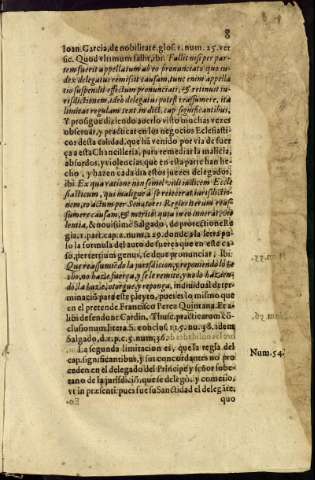 8
Ioan. Garcia, de nobilitate, glos. 1. num. 25. ver-
sic. Quod vltimum fallit, ibi: Fallit nisi per par-
tem fuerit appellatum ab eo pronunciato quo iu-
dex delegatus remisit causam, tunc enim appella-
tio suspendit effectum pronunciati, & retinuit iu-
risdictionem, adeò delegatus potest reassumere, ita
limitat regulam text. in dict. cap. significantibus,
Y prosigue diziendo auerlo visto muchas vezes
obseruar, y practicar en los negocios Eclesiasti-
cos desta calidad, que hã venido por via de fuer-
ça a esta Chancilleria, para remediar la malicia,
absordos, y violencias que en esta parte han he-
cho, y hazen cada dia estos juezes delegados,
ibi: Ex qua ratione non semel vidi iudicem Eccle-
siasticum, qui
nem, coactum per Senatores Regios iterum reas-
sumere causam, &
lentia, & nouissimè Salgado, de protectione Re-
gia, 1. part. cap. 2. num. 219. donde a la letra pu-
so la formula del auto de fuerça que en este ca-
so, per tertium genus, se deue pronunciar, ibi:
Que reassumiẽdo la jurisdicion, y reponiendo lo ha-
do, no hazia fuerça, y se le remite, y no lo haziẽn-
do la hazia, otorgue, y reponga, indiuidual deter-
minaciõ para este pleyto, pues es lo mismo que
en el pretende Francisco Perez Quintana. Et a-
libi defendit Gardin, Thusc. practicarum cõ-
clusionum litera S. conclus. 135. nu. 38. idem
Salgado, d. 2. p. c. 5. num. 36.
La segunda limitacion es, que la regla del
cap. significantibus, y sus concordantes no pro-
ceden en el delegado del Principe y señor sobe-
rano de la jurisdiciõ, que se delegò, y cometiò,
vt in præsenti: pues fue su Santidad el delegãte,
quo
Num. 54.